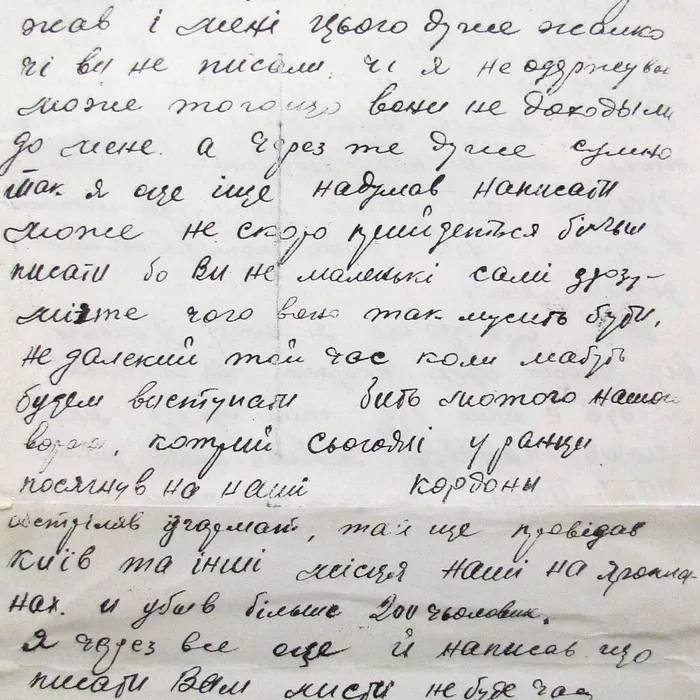 жав і мені цього дуже жалко
чі ви не писали, чі я не одержував
може того що вони не доходыли
до мене. а через те дуже сумно
так я оце іще надумав написати
може не скоро прийдеться більш
писати бо Ви не маленькі самі зрозу-
мієте чого воно так мусить бути,
не далекий той час коли мабуть
будем виступати бить лютого нашого
ворога, котрий сьогодні у ранци
посягнув на наші кордоны
обстріляв із гармат, та й ще провідав
Київ та інші місця наші на яропла-
нах. и убыв більше 200 чьоловик.
Я через все оце й написав що
писати Вам листи не буде час